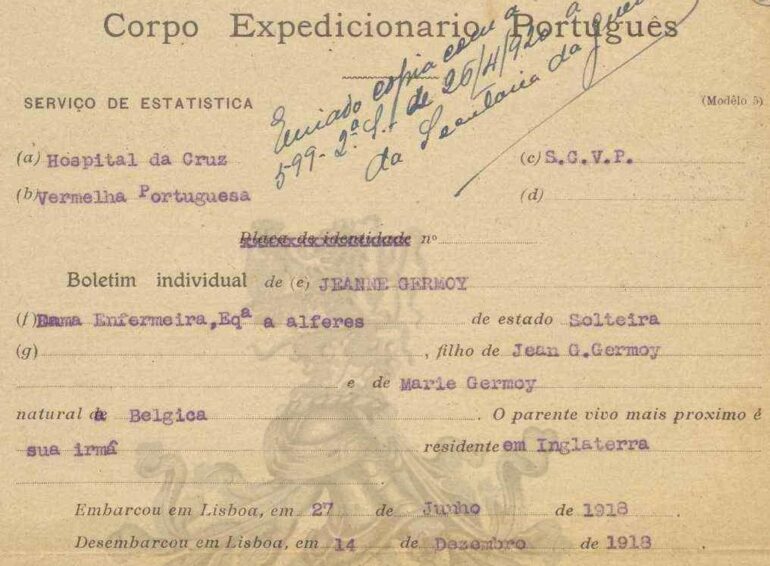 Corpo Expedicionario Português
Enviado copia com a
599-2ª S.- de 26/4/920 a
da Secretaria da Guerra
SERVIÇO DE ESTATISTICA
(Modêlo 5)
(a) Hospital da Cruz
(c) S.C.V.P.
(b) Vermelha Portuguesa
(d)
Placa de identidade nº
Boletim individual de (e) JEANNE GERMOY
(f) Dama Enfermeira, Eqª a alferes de estado Solteira
(g) , filho de Jean G.Germoy
e de Marie Germoy
natural da Belgica . O parente vivo mais proximo é
sua irmã residente em Inglaterra
Embarcou em Lisboa, em 27 de Junho de 1918 .
Desembarcou em Lisboa, em 14 de Dezembro de 1918 .